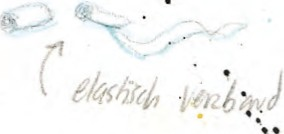 elastisch verband